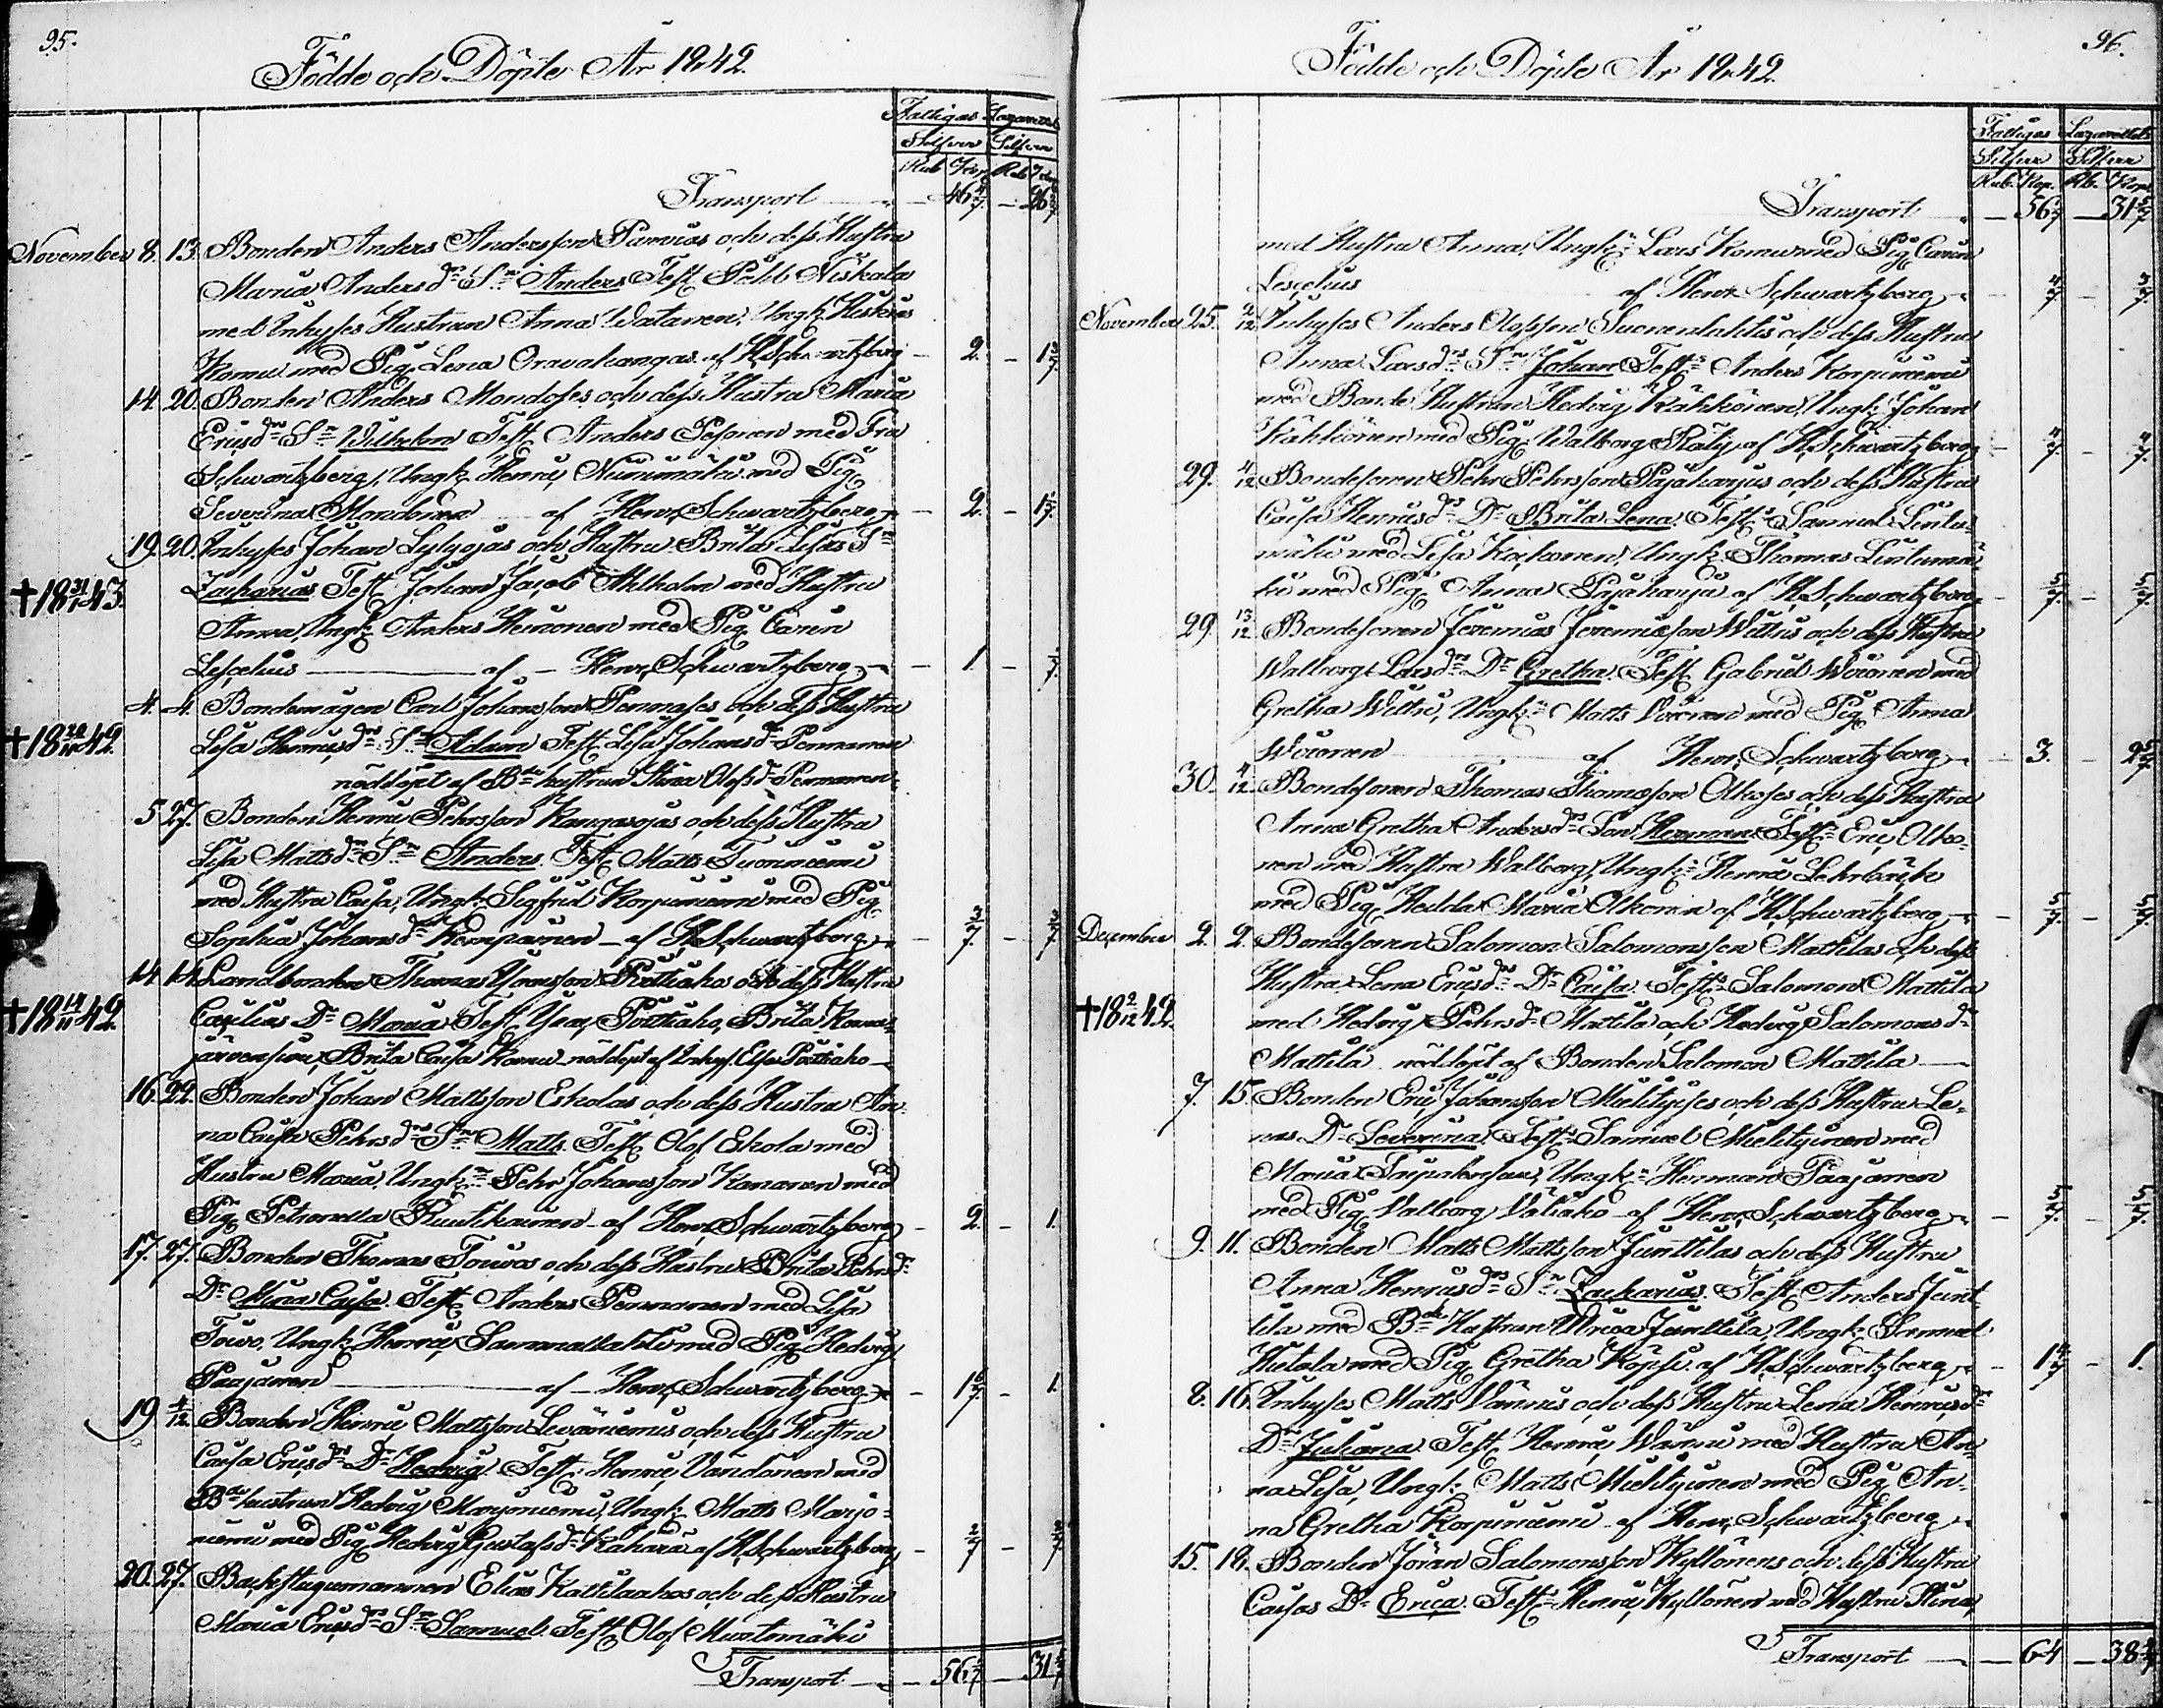 95.
Födde och Döpte År 1842.
Fattigas Lazarettets
Silfver Silfver
Rub Kop Rub Kop
Transport — 46 4/7 — 26
November 8. 13. Bonden Anders Andersson Parvias och dess Hustru
Maria Andersdrs Sn Anders Test. Påhl Niskala
med Inhyses Hustrun Anna Watanen, Ungk.
Komu med Pig. Lena Oravakangas af H. Schwartzberg — 2. — 1
14. 20. Bonden Anders Mondoses och dess Hustru Maria
Ericsdrs Sn Wilhelm Test. Anders Pesonen med Fru
Schwartzberg, Ungk. Henric Nurmimäki med Pig.
Severina Mondonen af Henr. Schwartzberg — 2. — 1
19. 20. Inhyses Johan Lylyojas och Hustru Brita Lisas Sn
† 18 31/1 43. Zacharias Test. Johan Jacob Ahlholm med Hustru
Anna, Ungk. Anders Heinonen med Pig. Carin
Lescelius — af — Henr. Schwartzberg — 1. —
4. 4. Bondemågen Carl Johansson Pennases och dess Hustru
† 18 20/11 42. Lisa Henricsdrs Sn Adam Test. Lisa Johansdr Pennanen
nöddöpt af Bde hustrun Stina Olofsdr Pennanen
5 27. Bonden Henric Pehrsson Kangasojas och dess Hustru
Lisa Mattsdrs Sn Anders. Test. Matts Tuorniemi
med Hustru Caisa, Ungk. Sigfrid Korpiniemi med Pig.
Sophia Johansdr Kemppainen — af H. Schwartzberg — 3/7 — 3/7
14 14. Landbonden Thomas Yrjansson Pottiahos och dess Hustru
† 18 14/11 42. Cæcilias Dr Maria Test. Pottiaho, Brita
Brita Caisa Komu nöddöpt af Inhys. Elsa Pottiaho —
16. 22. Bonden Johan Mattsson Eskolas och dess Hustru An-
na Caisa Pehrsdrs Sn Matts. Test. Olof Eskola med
Hustru Maria, Ungk. Pehr Johansson Kananen med
Pig. Petronella af Henr. Schwartzberg — 2. — 1.
17. 27. Bonden Thomas Toivos och dess Hustru Brita Pehrsdrs
Dr Maria Caisa. Test. Anders Pennanen med Lisa
Toivo, Ungk. Henric Sammallahti med Pig. Hedvig
Paajanen — af — Henr. Schwartzberg — 1 6/7 — 1.
19 4/12 Bonden Henric Mattsson Leväniemis och dess Hustru
Caisa Ericsdrs Dr Hedvig. Test. Henric Vändänen med
Bde hustrun Hedvig Marjoniemi, Ungk. Matts Marjo-
niemi med Pig. Hedvig Gustafsdr Kähärä af H. Schwartzberg — 2/7 — 2/7
20. 27. Backstugumannen Elias Kattilaahos och dess Hustru
Maria Ericsdrs Sn Samuel. Test. Olof Murtomäki
Transport — 56 — 31
96.
Födde och Döpte År 1842.
Fattigas Lazarettets
Silfver Silfver
Rub. Kop. Rb. Kop.
Transport — 56 — 31
med Hustru Anna, Ungk. Lars Komu med Pig. Carin
Lescelius af Henr. Schwartzberg — 4/7 — 3/7
November 25. 2/12. Inhyses Anders Olofsson Suonenlahtis och dess Hustru
Anna Larsdrs Sn Johan Test. Anders Korpiniemi
med Bonde Hustrun Hedvig Räkkönen, Ungk. Johan
Räkkönen med Pig. Walborg Räty, af H. Schwartzberg — 4/7 — 4/7
29. 4/12 Bondesonen Pehr Pehrsson Pajaharjus och dess Hustru
Caisa Henricsdrs Dr Brita Lena. Test. Samuel Lintu-
mäki med Lisa Karkonen, Ungk. Thomas Lintumä-
ki med Pig. Anna Pajaharju af H. Schwartzberg — 5/7 — 5/7
29 13/12 Bondesonen Jeremias Jeremiasson Wittiis och dess Hustru
Walborg Larsdrs Dr Gretha. Test. Gabriel Woronen med
Gretha Wittie, Ungk. Matts Voronen med Pig. Anna
Woronen af Henr. Schwartzberg — 3. — 2 5/7
30. 4/12 Bondesonen Thomas Thomasson Olkoses och dess Hustru
Anna Gretha Andersdrs Son Herman. Test. Eric Olko-
nen med Hustru Walborg, Ungk. Henric Lehrbäck
med Pig. Hedda Maria Olkonen af H. Schwartzberg — 5/7 — 5/7
December 2. 2. Bondesonen Salomon Salomonsson Mattilas och dess
Hustru Lena Ericsdrs Dr Caisa. Test. Salomon Mattila
† 18 2/12 42. med Hedvig Pehrsdr Mattila och Hedvig Salomonsdr
Mattila nöddöpt af Bonden Salomon Mattila —
7. 15. Bonden Eric Johansson Mielityises och dess Hustru Le-
nas Dr Severina. Test. Samuel Mielityinen med
Maria, Ungk. Herman Paajanen
med Pig. Valborg Väliaho af Henr. Schwartzberg — 5/7 — 5/7
9. 11. Bonden Matts Mattsson Junttilas och dess Hustru
Anna Henricsdrs Sn Zacharias. Test. Anders Junt-
tila med Bde Hustrun Ulrica Junttila, Ungk. Samuel
Hietala med Pig. Gretha Köpsi af H. Schwartzberg — 1 4/7 — 1.
8. 16. Inhyses Matts Vännis och dess Hustru Lena Henricsdrs
Dr Juliana. Test. Henric Wänni med Hustru An-
na Lisa, Ungk. Matts Mielityinen med Pig. An-
na Gretha Korpiniemi af Henr. Schwartzberg
15. 18. Bonden Jöran Salomonsson Kyllönens och dess Hustru
Caisas Dr Erica. Test. Henric Kyllönen med Hustru Stina,
Transport — 64 — 38 4/7